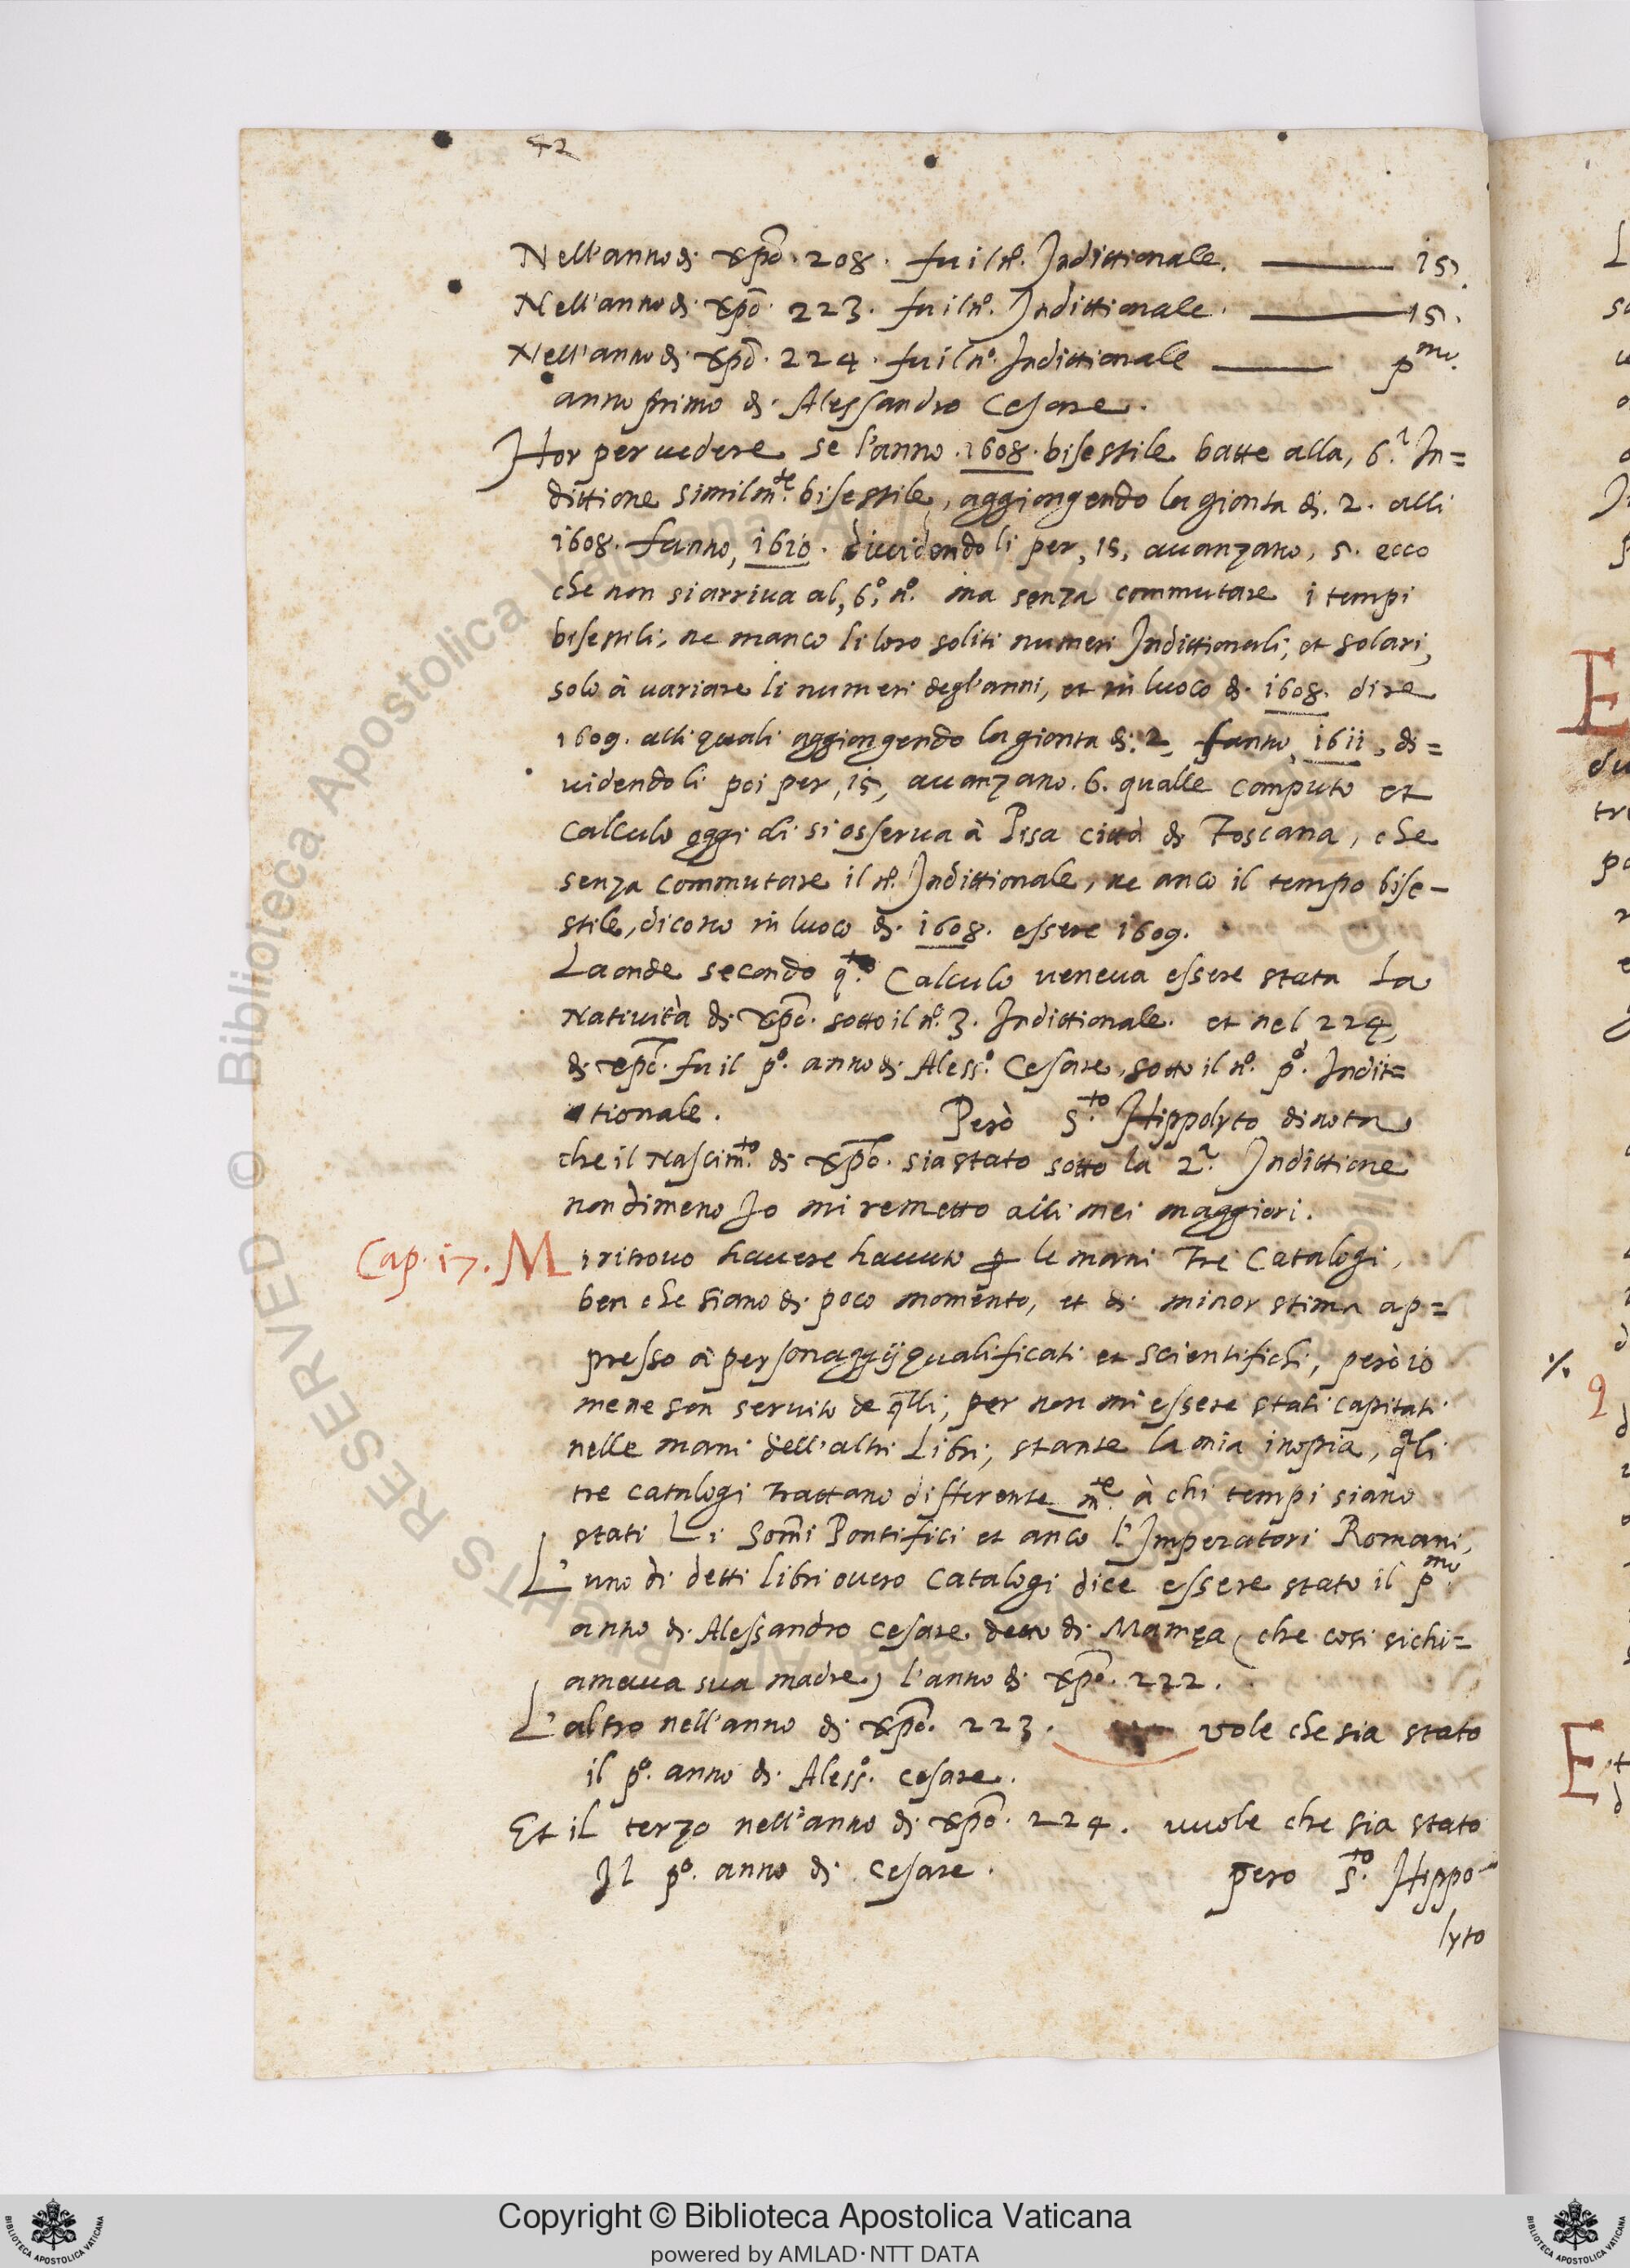 42
Nell'anno di xpo. 208. fu il n.o Indittionale. —— 15.
Nell'anno di xpo. 223. fu il n.o Indittionale. —— 15.
Nell'anno di xpo. 224. fu il n.o Indittionale —— pmo.
anno primo di Alessandro Cesare.
Hor per vedere se l'anno .1608. bisestile batte alla, 6.a In=
dittione similmte. bisestile, aggiongendo la gionta di. 2. alli
1608. fanno, 1610. dividendoli per, 15, avanzano, 5. ecco
che non si arriva al, 6.o n.o ma senza commutare i tempi
bisestili, ne manco li loro soliti numeri Indittionali, et solari,
solo à variare li numeri degl'anni, et in luoco di. 1608. dire
1609. alli quali aggiongendo la gionta di. 2, fanno, 1611, di=
videndoli poi per, 15, avanzano. 6. qualle computo et
calculo oggi di si osserva à Pisa città di Toscana, che
senza commutare il n.o Indittionale, ne anco il tempo bise-
stile, dicono in luoco di. 1608. essere 1609.
Laonde secondo q.to Calculo veneva essere stata la
Natività di xpo. sotto il n.o 3. Indittionale. et nel 224,
di xpo. fu il p.o anno di Aless.o Cesare, sotto il n.o p.o Indit=
tionale. Però S.to Hippolyto dinota
che il Nascim.to di xpo. sia stato sotto la 2.a Indittione
nondimeno Io mi remetto alli mei maggiori.
Cap. 17. Mi ritrovo havere havuto p le mani Tre Catalogi,
ben che siano di poco momento, et di minor stima ap=
presso à personaggij qualificati et scientifichi, però io
me ne son servito de qlli, per non mi essere stati capitati
nelle mani dell'altri Libri, stante la mia inopia, qali
tre catalogi Trattano differentemte. à chi tempi siano
stati Li Somi Pontifici et anco l'Imperatori Romani,
L'uno di detti libri overo Catalogi dice essere stato il pmo.
anno di Alessandro Cesare detto di Mamęa (che cosi si chi=
amava sua madre) l'anno di xpo. 222.
L'altro nell'anno di xpo. 223. vole che sia stato
il p.o anno di Aless.o Cesare.
Et il terzo nell'anno di xpo. 224. vuole che sia stato
Il p.o anno di Cesare. pero S.to Hippo-
lyto
© Biblioteca Apostolica Vaticana
Copyright © Biblioteca Apostolica Vaticana
powered by AMLAD·NTT DATA